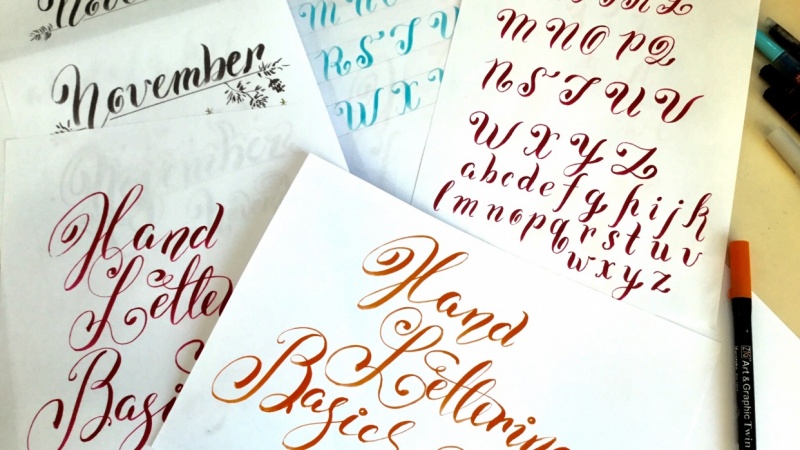 November
M N
R S T U
W X
M N O P Q
R S T U V
W X Y Z
a b c d e f g h i j k
l m n o p q r s t u v
w x y z
Hand
Letter
Basi
Hand
Lettering
Basics
Art & Graphic Twin